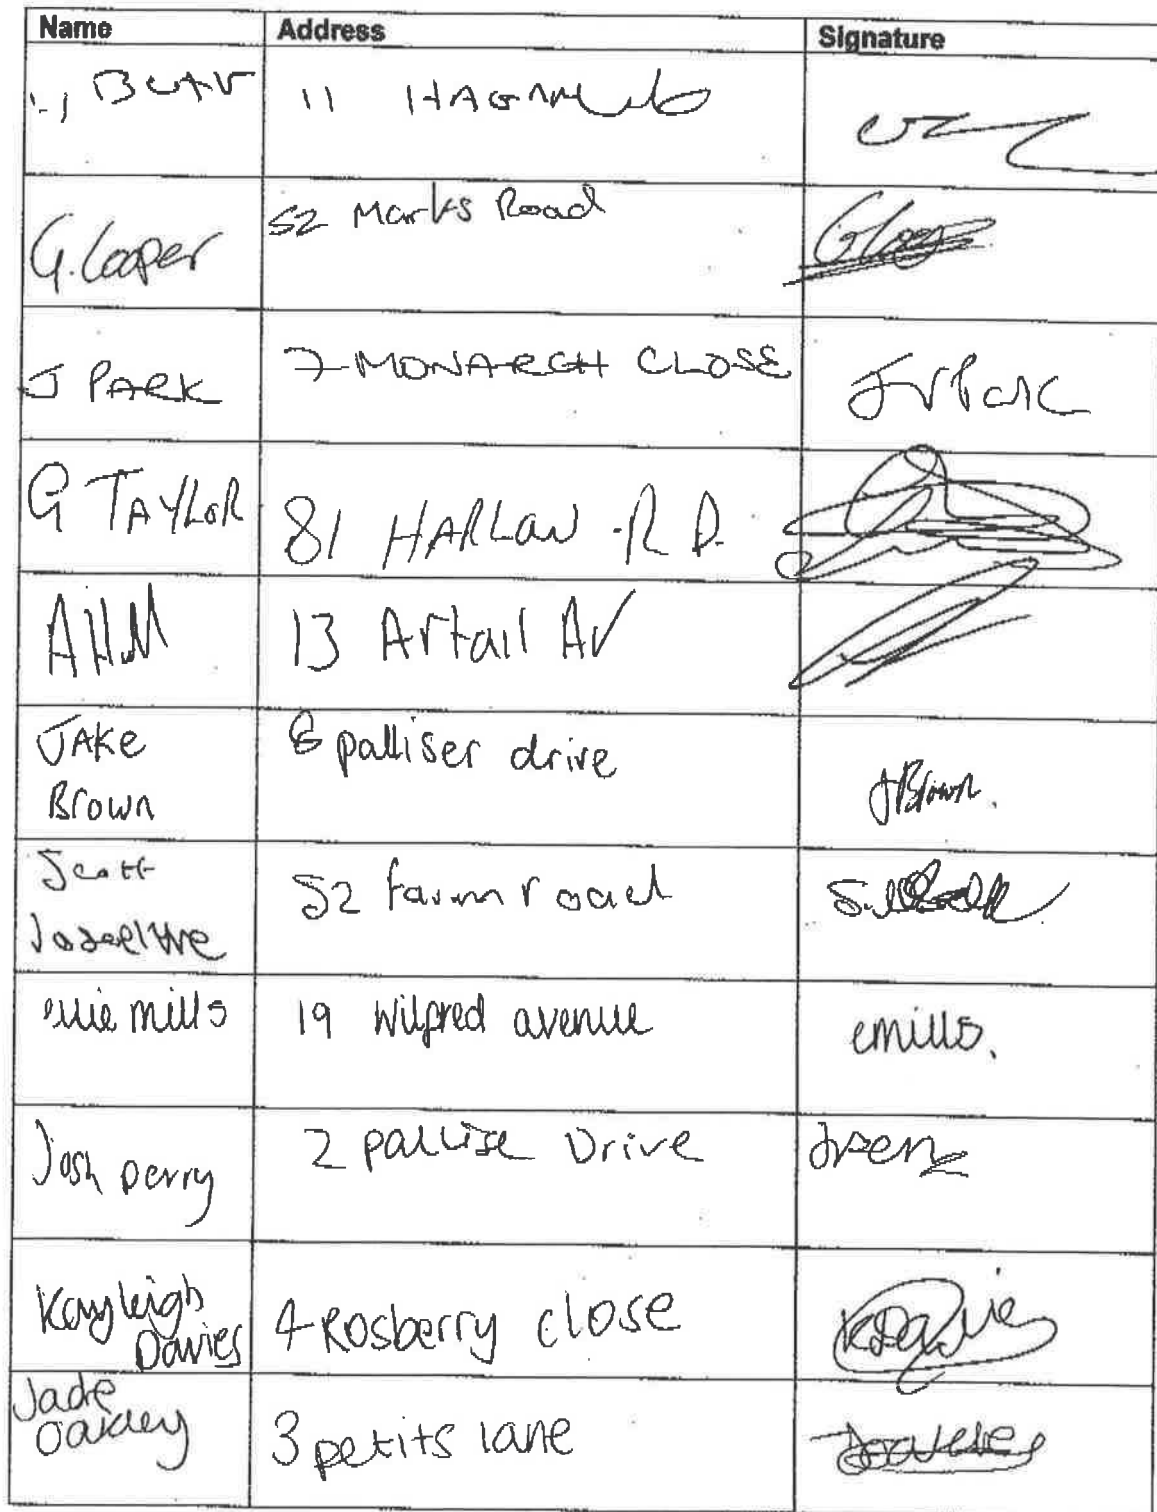 Name Address Signature
11
G. Cooper 52 Marks Road
J PARK 7 MONARCH CLOSE J V Park
G TAYLOR 81 HARLOW RD.
13 Artail AV
JAKE 6 palliser drive
Brown J Brown.
Scott 52 farm road
Joseline
ellie mills 19 Wilfred avenue emills.
Josh perry 2 pallise Drive
Kayleigh
Davies 4 Rosberry close KDavies
Jade
Oakley 3 petits lane